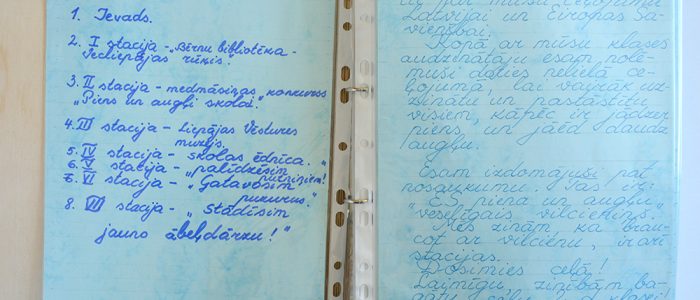 1. Ievads.
2. I stacija - „Bērnu bibliotēka -
Vecliepājas rūķis."
3. II stacija - medmāsiņas konkurss
„Piens un augļi skolai."
4. III stacija - Liepājas Vēstures
muzejs.
5. IV stacija - skolas ēdnīca."
6. V stacija - „palīdzēsim
putniņiem!
7. VI stacija - „Gatavosim
pukurus."
8. VII stacija - „Stādīsim
jauno ābeļdārzu!"
Latvijai un Eiropas Sa-
vienībai.
Kopā ar mūsu klases
audzinātāju esam nolē-
muši doties nelielā ce-
ļojumā, lai vairāk uz-
zinātu un pastāstītu
visiem, kāpēc ir jādzer
piens un jāēd daudz
augļu.
Esam izdomājuši pat
nosaukumu. Tas ir:
„ES piena un augļu
veselīgais vilcieniņš."
Mēs zinām, ka brau-
cot ar vilcienu, ir arī
stacijas.
Dosimies ceļā!
Laimīgu, zinībām ba-